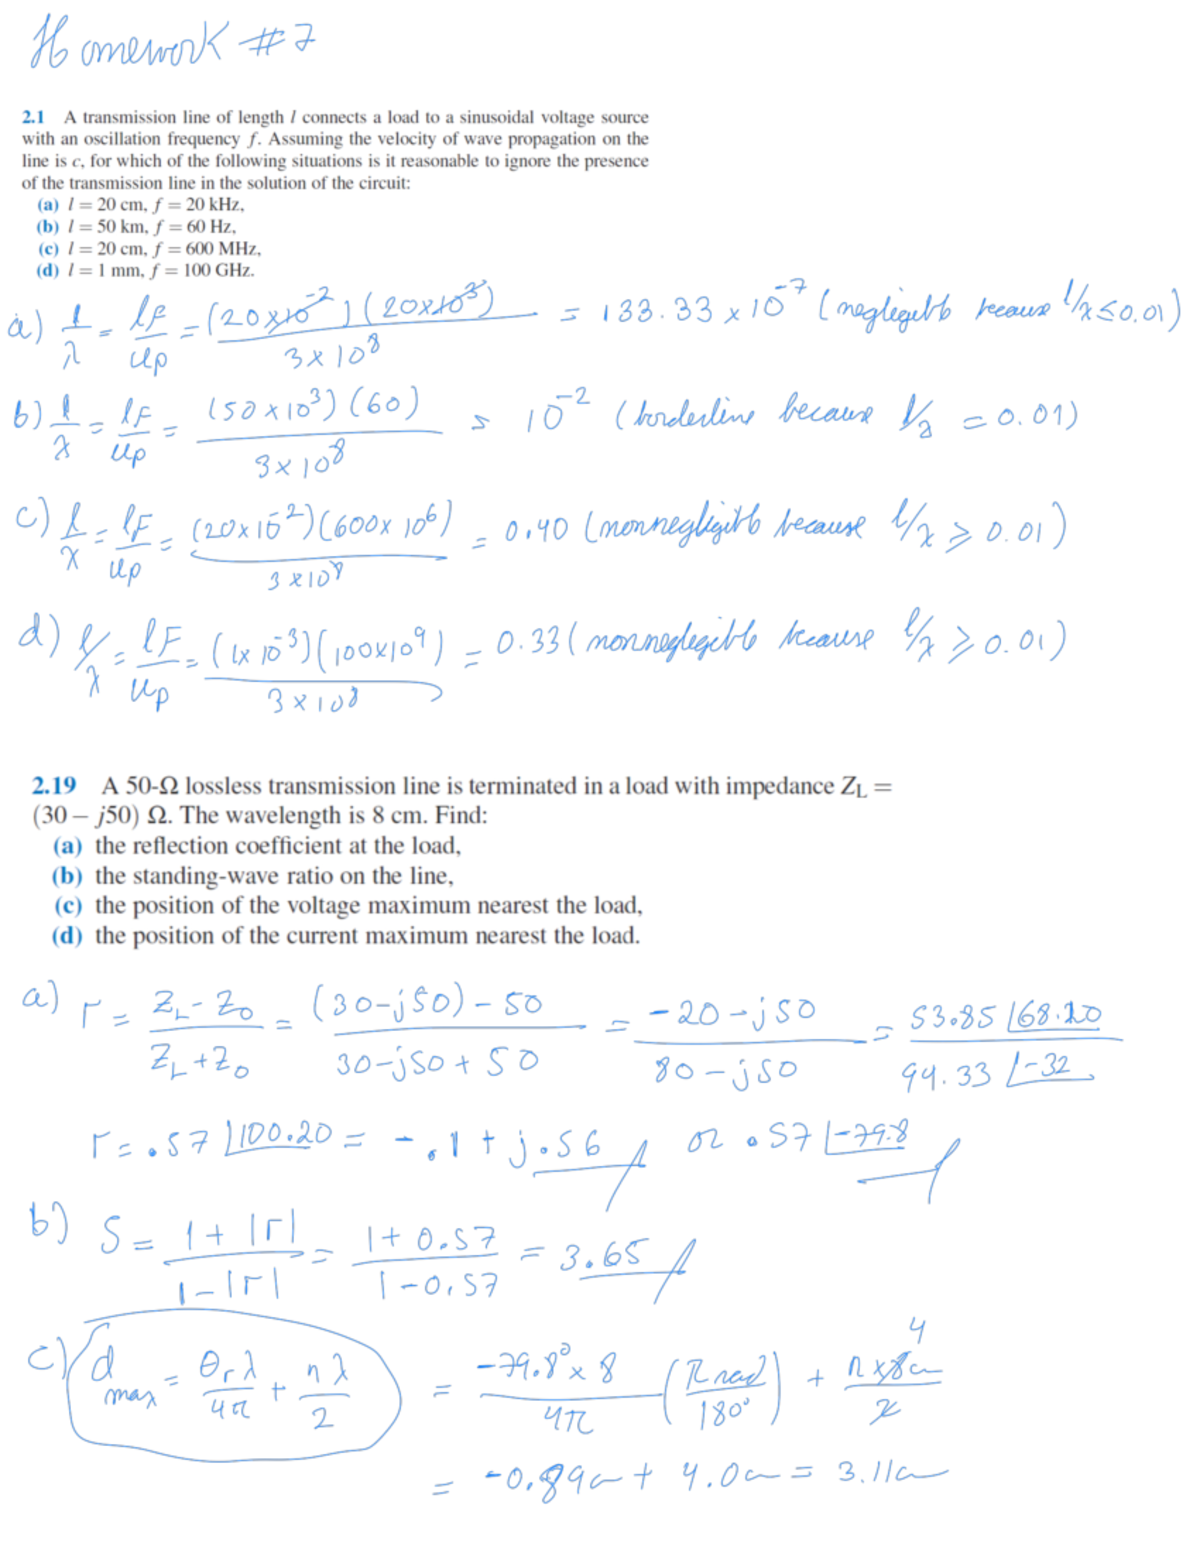 Homework #7
2.1 A transmission line of length l connects a load to a sinusoidal voltage source
with an oscillation frequency f. Assuming the velocity of wave propagation on the
line is c, for which of the following situations is it reasonable to ignore the presence
of the transmission line in the solution of the circuit:
(a) l = 20 cm, f = 20 kHz,
(b) l = 50 km, f = 60 Hz,
(c) l = 20 cm, f = 600 MHz,
(d) l = 1 mm, f = 100 GHz.
a) l/λ = lf/up = (20x10^-2)(20x10^3)/3x10^8 = 133.33 x 10^-7 (negligible because l/λ ≤ 0.01)
b) l/λ = lf/up = (50x10^3)(60)/3x10^8 = 10^-2 (borderline because l/λ = 0.01)
c) l/λ = lf/up = (20x10^-2)(600x10^6)/3x10^8 = 0.40 (nonnegligible because l/λ ≥ 0.01)
d) l/λ = lf/up = (1x10^-3)(100x10^9)/3x10^8 = 0.33 (nonnegligible because l/λ ≥ 0.01)
2.19 A 50-Ω lossless transmission line is terminated in a load with impedance ZL =
(30 – j50) Ω. The wavelength is 8 cm. Find:
(a) the reflection coefficient at the load,
(b) the standing-wave ratio on the line,
(c) the position of the voltage maximum nearest the load,
(d) the position of the current maximum nearest the load.
a) Γ = (ZL - Z0)/(ZL + Z0) = ((30-j50) - 50)/(30-j50+50) = (-20-j50)/(80-j50) = 53.85∠68.20/94.33∠-32
Γ = .57∠100.20 = -.1 + j.56 or .57∠-79.8
b) S = (1+|Γ|)/(1-|Γ|) = (1+0.57)/(1-0.57) = 3.65
c) dmax = θrλ/4π + nλ/2 = (-79.8° x 8)/4π (π rad/180°) + n x 8cm/2 4
= -0.89cm + 4.0cm = 3.11cm